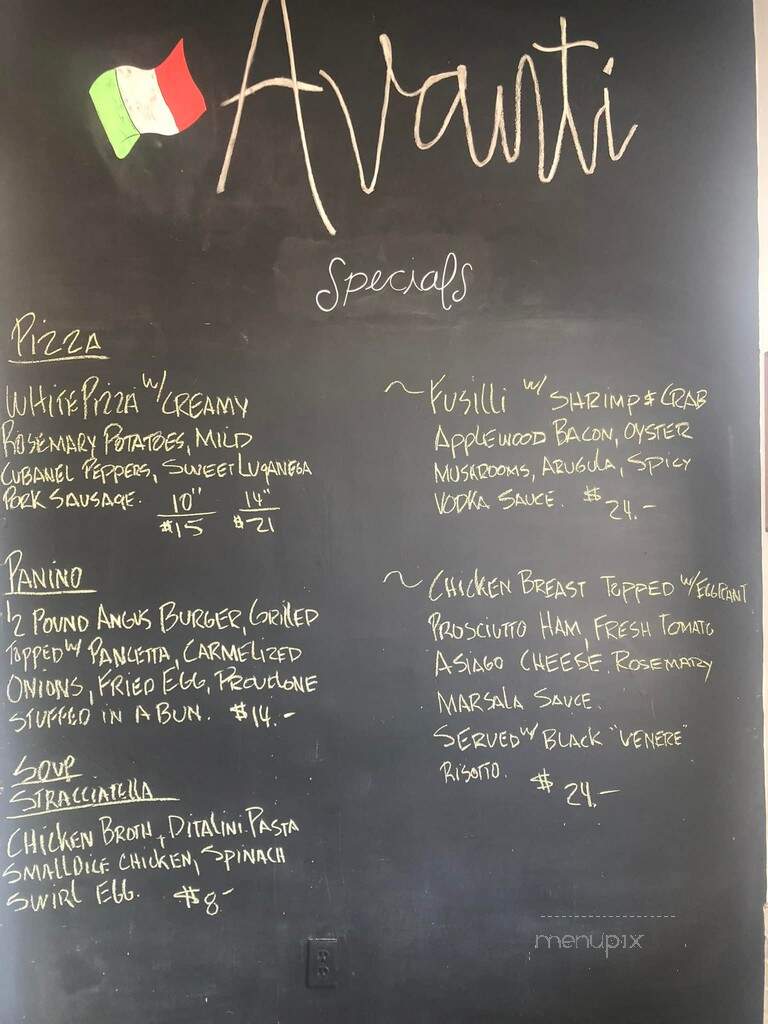 Avanti
Specials
Pizza
White Pizza w/ Creamy
Rosemary Potatoes, Mild
Cubanel Peppers, Sweet Luganega
Pork Sausage. 10" 14"
$15 $21
Panino
1/2 Pound Angus Burger, Grilled
Topped w/ Pancetta, Carmelized
Onions, Fried Egg, Provolone
Stuffed in a Bun. $14.-
Soup
Stracciatella
Chicken Broth, Ditalini Pasta
Small Dice Chicken, Spinach
Swirl Egg. $8-
~ Fusilli w/ Shrimp & Crab
Applewood Bacon, Oyster
Mushrooms, Arugula, Spicy
Vodka Sauce. $24.-
~ Chicken Breast Topped w/ Eggplant
Prosciutto Ham, Fresh Tomato
Asiago Cheese, Rosemary
Marsala Sauce.
Served w/ Black "Venere"
Risotto. $24.-
menupix